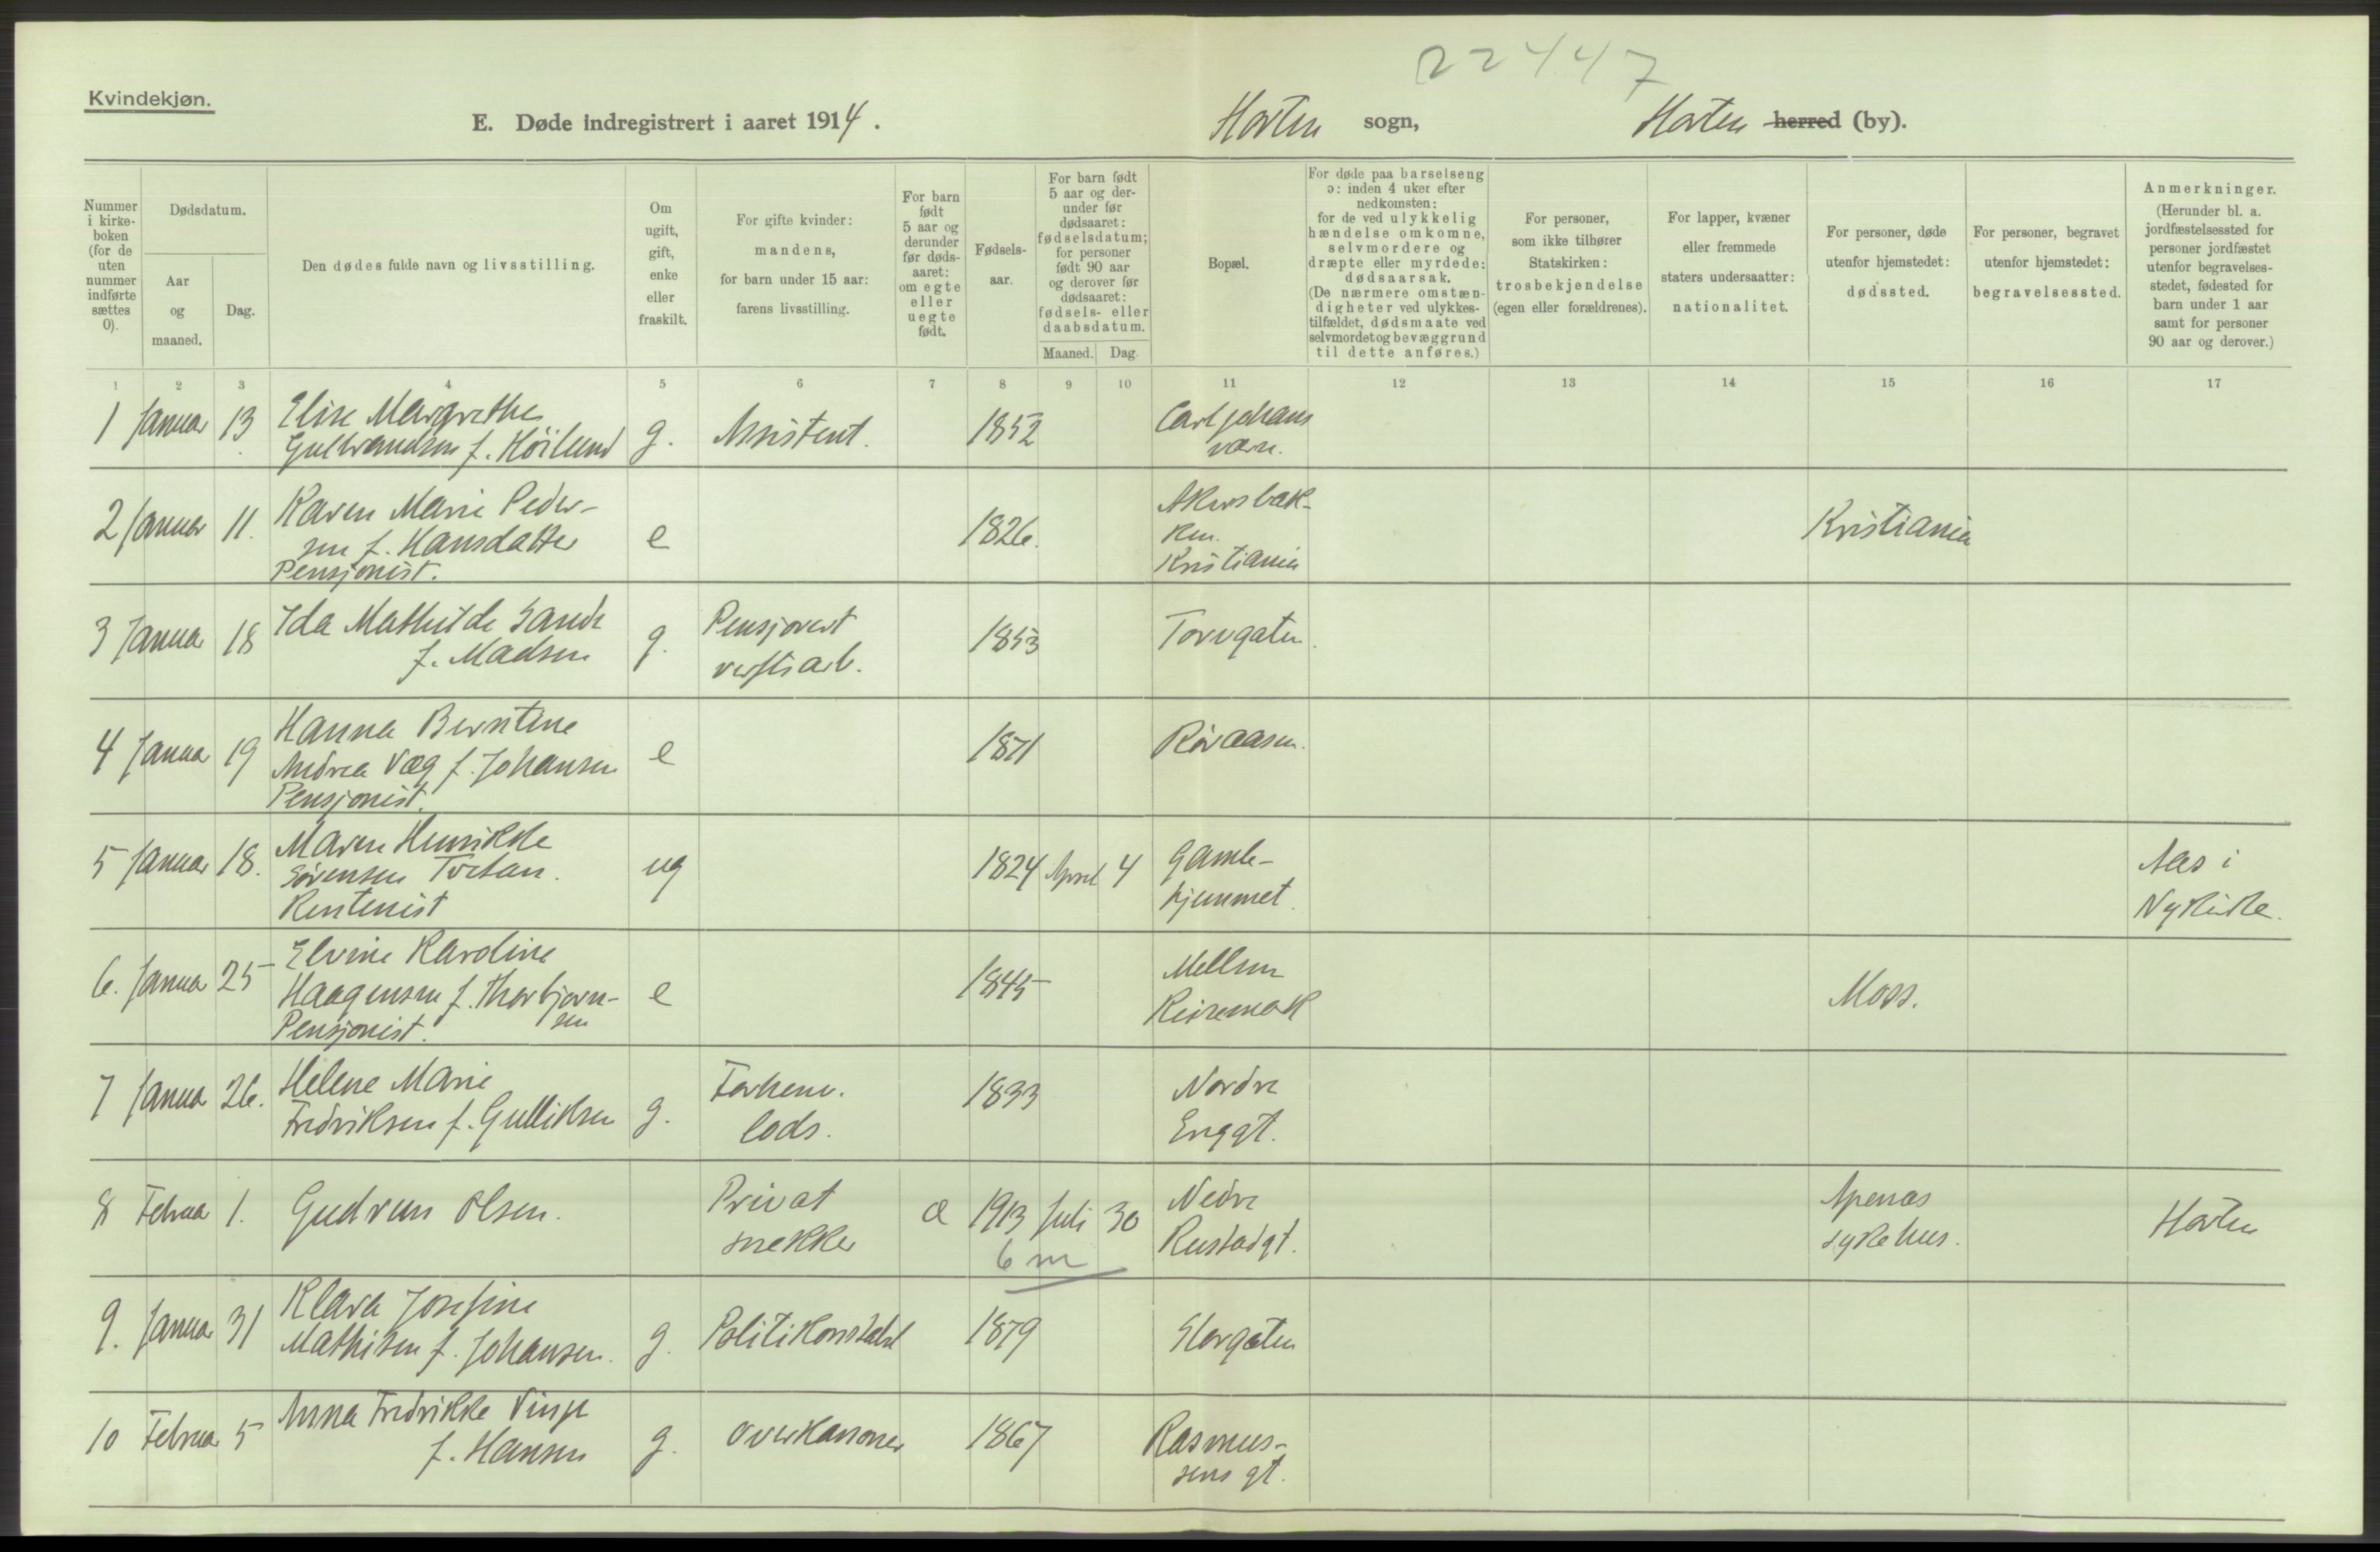 22447
Kvindekjøn.
E. Døde indregistrert i aaret 1914. Horten sogn, Horten herred (by).
Nummer i kirke-boken (for de uten nummer indførte sættes 0).
Dødsdatum.
Aar og maaned.
Dag.
Den dødes fulde navn og livsstilling.
Om ugift, gift, enke eller fraskilt.
For gifte kvinder: mandens, for barn under 15 aar: farens livsstilling.
For barn født 5 aar og derunder før døds-aaret: om egte eller uegte født.
Fødsels-aar.
For barn født 5 aar og der-under før dødsaaret: fødselsdatum; for personer født 90 aar og derover før dødsaaret: fødsels- eller daabsdatum.
Maaned. Dag.
Bopæl.
For døde paa barselseng ɔ: inden 4 uker efter nedkomsten: for de ved ulykkelig hændelse omkomne, selvmordere og dræpte eller myrdede: dødsaarsak. (De nærmere omstæn-digheter ved ulykkes-tilfældet, dødsmaate ved selvmordet og bevæggrund til dette anføres.)
For personer, som ikke tilhører Statskirken: trosbekjendelse (egen eller forældrenes).
For lapper, kvæner eller fremmede staters undersaatter: nationalitet.
For personer, døde utenfor hjemstedet: dødssted.
For personer, begravet utenfor hjemstedet: begravelsessted.
Anmerkninger. (Herunder bl. a. jordfæstelsessted for personer jordfæstet utenfor begravelses-stedet, fødested for barn under 1 aar samt for personer 90 aar og derover.)
1 2 3 4 5 6 7 8 9 10 11 12 13 14 15 16 17
1 Januar 13 Elise Margrethe Gulbrandsen f. Höilund g. Assistent. 1852 Carl Johans værn.
2 Januar 11. Karen Marie Peder-sen f. Hansdatter Pensjonist. e 1826. Akersbak-ken. Kristiania Kristiania
3 Januar 18 Ida Mathilde Sande f. Madsen g. Pensjonert verftsarb. 1853 Torvgaten.
4 Januar 19 Hanna Berntine Andrea Væg f. Johansen Pensjonist. e 1871 Røraasen.
5 Januar 18. Maren Henrikke Sørensen Tortan. Rentenist ug 1824 April 4 Gamle-hjemmet. Aas i Nykirke.
6. Januar 25 Elvine Karoline Haagensen f. Thorbjørn-sen Pensjonist. e 1845 Mellem Keisemark Moss.
7 Januar 26. Helene Marie Fredriksen f. Gulliksen g. Forhenv. lods. 1833 Nordre Enggt.
8 Februar 1. Gudrun Olsen. Privat snekker æ 1913 Juli 30 6 m Nedre Rustadgt. Apenæs sykehus. Horten
9. Januar 31 Klara Josefine Mathisen f. Johansen. g. Politikonstabel 1879 Storgaten
10 Februar 5 Anna Fredrikke Vinje f. Hansen g. Overkanoner 1867 Rasmus-sens gt.